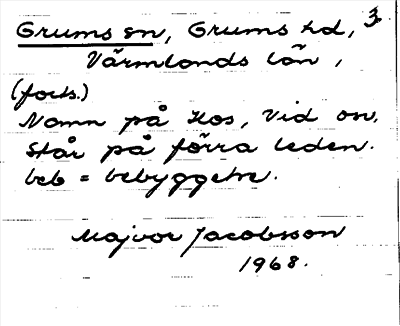 3
Grums sn, Grums hd,
Värmlands län,
(forts.)
Namn på Hos, Vid on.
står på förra leden.
beb = bebyggelse.
Majvor Jacobsson
1968.